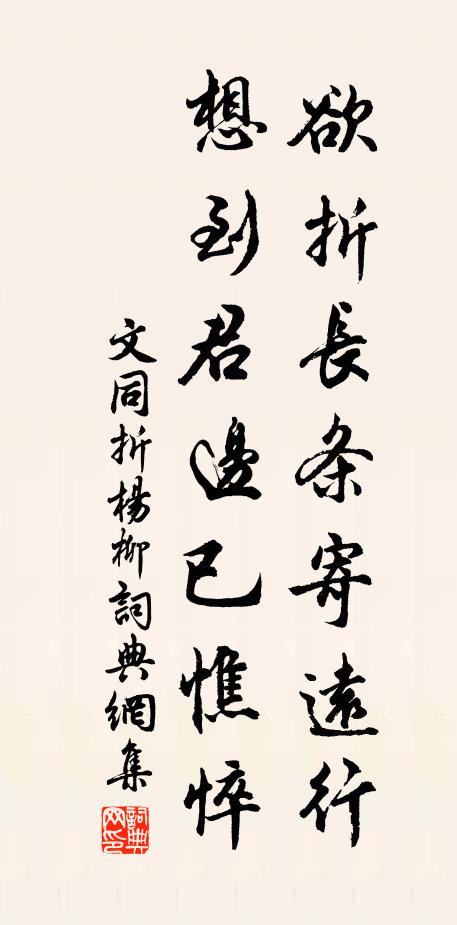 欲折長条寄遠行
想到君邊已憔悴
文同折楊柳詞典網集
詞典
網印